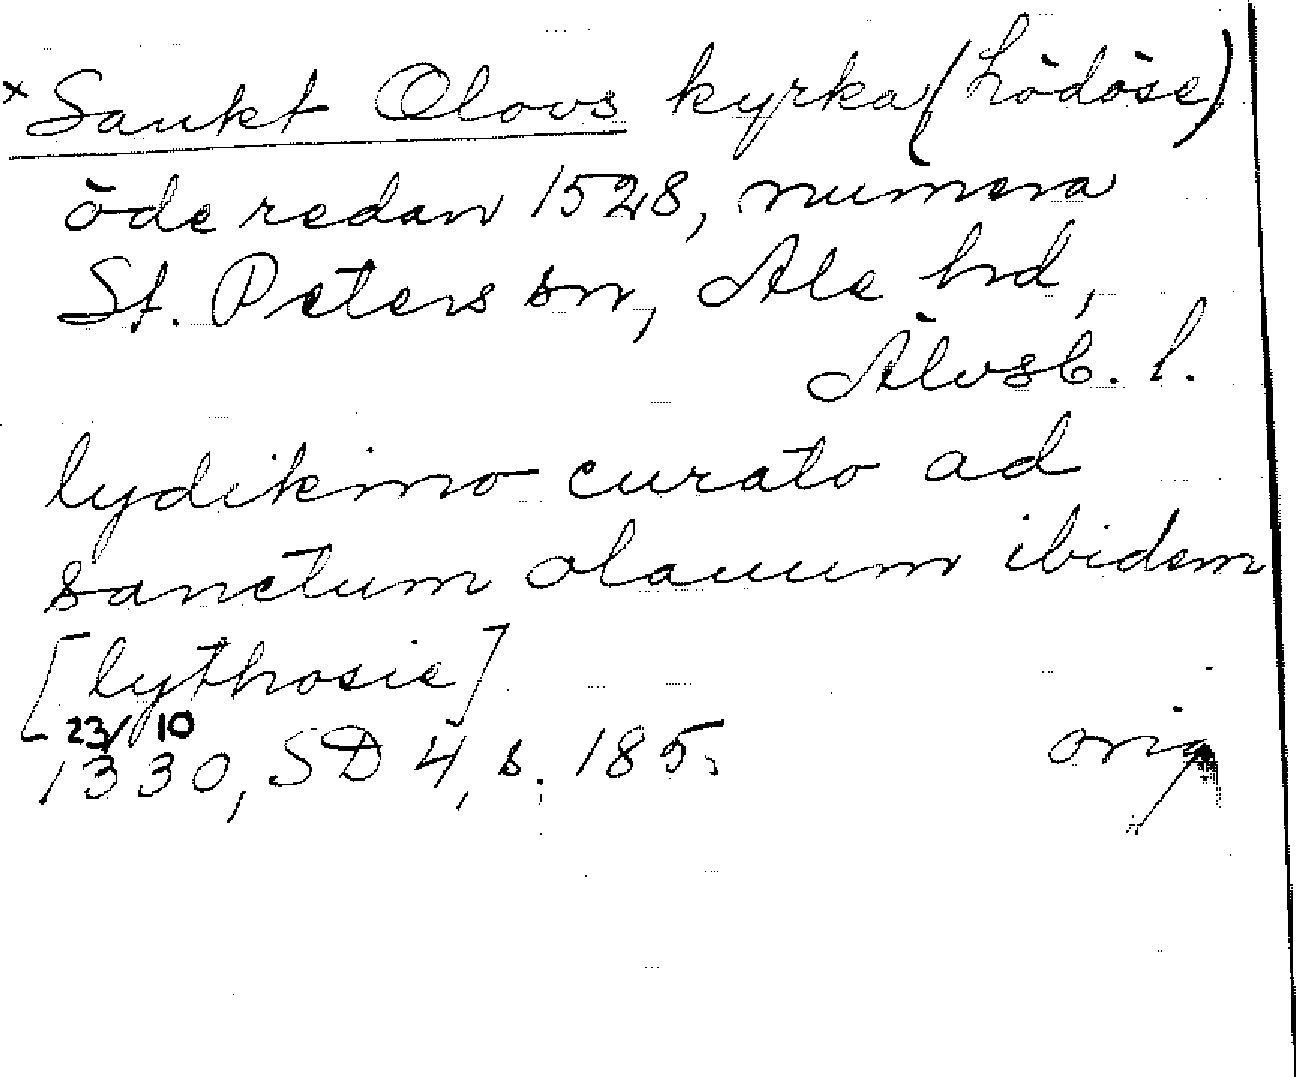 × Sankt Olovs kyrka (Lödöse)
öde redan 1528, numera
St. Peters sn, Ale hd,
Älvsb. l.
lydikino curato ad
sanctum olauum ibidem
[lythosie]
23/10
1330, SD 4, s. 185. orig